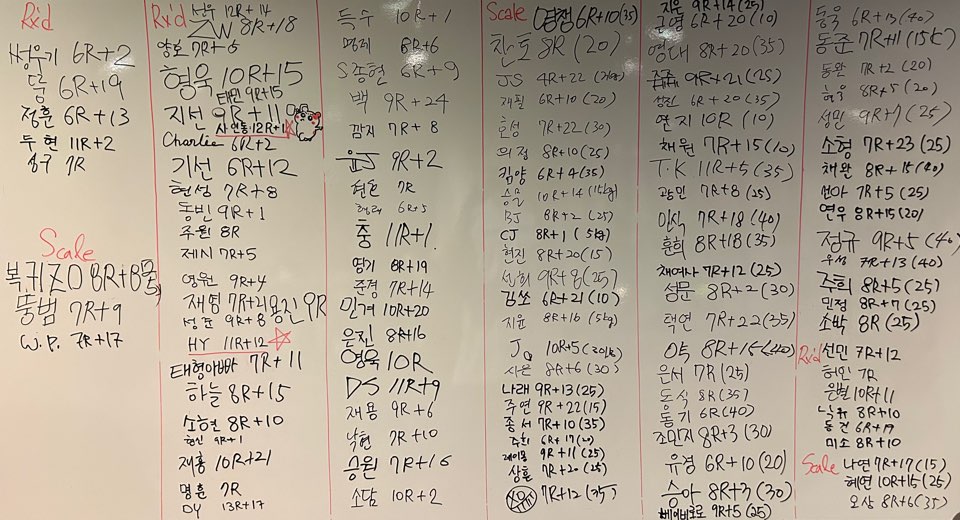 Rx'd
6R+2
6R+19
정훈 6R+13
두현 11R+2
7R
Scale
복귀ZO 8R+8
뚱범 7R+9
W.D. 7R+17
Rx'd
12R+14
ZW 8R+18
양호 7R+6
형욱 10R+15
태민 9R+15
지선 9R+11
사연동 12R+1
Charlee 6R+2
기선 6R+12
현성 7R+8
동빈 9R+1
주원 8R
제시 7R+5
영원 9R+4
재범 7R+21
용신 9R
성준 9R+8
HY 11R+12
태형아빠 7R+11
하늘 8R+15
소현 8R+10
형신 9R+1
재홍 10R+21
명훈 7R
DY 13R+17
득수 10R+1
8R+6
S종현 6R+9
백 9R+24
깜지 7R+8
윤J 9R+2
7R
6R+5
중 11R+1
영기 8R+19
주경 7R+14
민거 10R+20
은진 8R+16
영욱 10R
DS 11R+9
재용 9R+6
낙현 7R+10
승원 7R+16
소담 10R+2
Scale
영점 6R+10 (35)
찬호 8R (20)
JS 4R+22
재필 6R+10 (20)
효성 7R+22 (30)
의정 8R+10 (25)
킴양 6R+4 (35)
승윤 10R+14 (15kg)
BJ 8R+2 (25)
CJ 8R+1 (5kg)
현진 8R+20 (15)
선희 9R+8 (25)
김쏘 6R+21 (10)
지윤 8R+16 (5kg)
J 10R+5 (20kg)
사은 8R+6 (30)
나래 9R+13 (25)
주연 9R+22 (15)
종서 7R+10 (35)
주희 6R+17 (20)
제이문 9R+11 (25)
상훈 7R+20 (25)
7R+12 (35)
지윤 9R+14 (25)
근영 6R+20 (10)
영대 8R+20 (35)
9R+21 (25)
성진 6R+20 (35)
연지 10R (10)
채원 7R+15 (10)
T.K 11R+5 (35)
광민 7R+8 (25)
인식 7R+18 (40)
훈희 8R+18 (35)
채여사 7R+12 (25)
성문 8R+2 (30)
택연 7R+22 (35)
8R+15 (40)
은서 7R (25)
동식 8R (35)
동기 6R (40)
조민지 8R+3 (30)
유경 6R+10 (20)
승아 8R+3 (30)
베이비로로 9R+5 (25)
동욱 6R+13 (40)
동준 7R+11 (15k)
동완 7R+2 (20)
현우 8R+5 (20)
성민 9R+7 (25)
소형 7R+23 (25)
채완 8R+15 (40)
선아 7R+5 (25)
연우 8R+15 (20)
정규 9R+5 (40)
우성 7R+13 (40)
주희 8R+5 (25)
민정 8R+7 (25)
소박 8R (25)
Rx'd
선민 7R+12
허인 7R
은별 10R+11
낙규 8R+10
동건 6R+19
미소 8R+10
Scale
나연 7R+17 (15)
혜연 10R+15 (25)
오상 8R+6 (35)